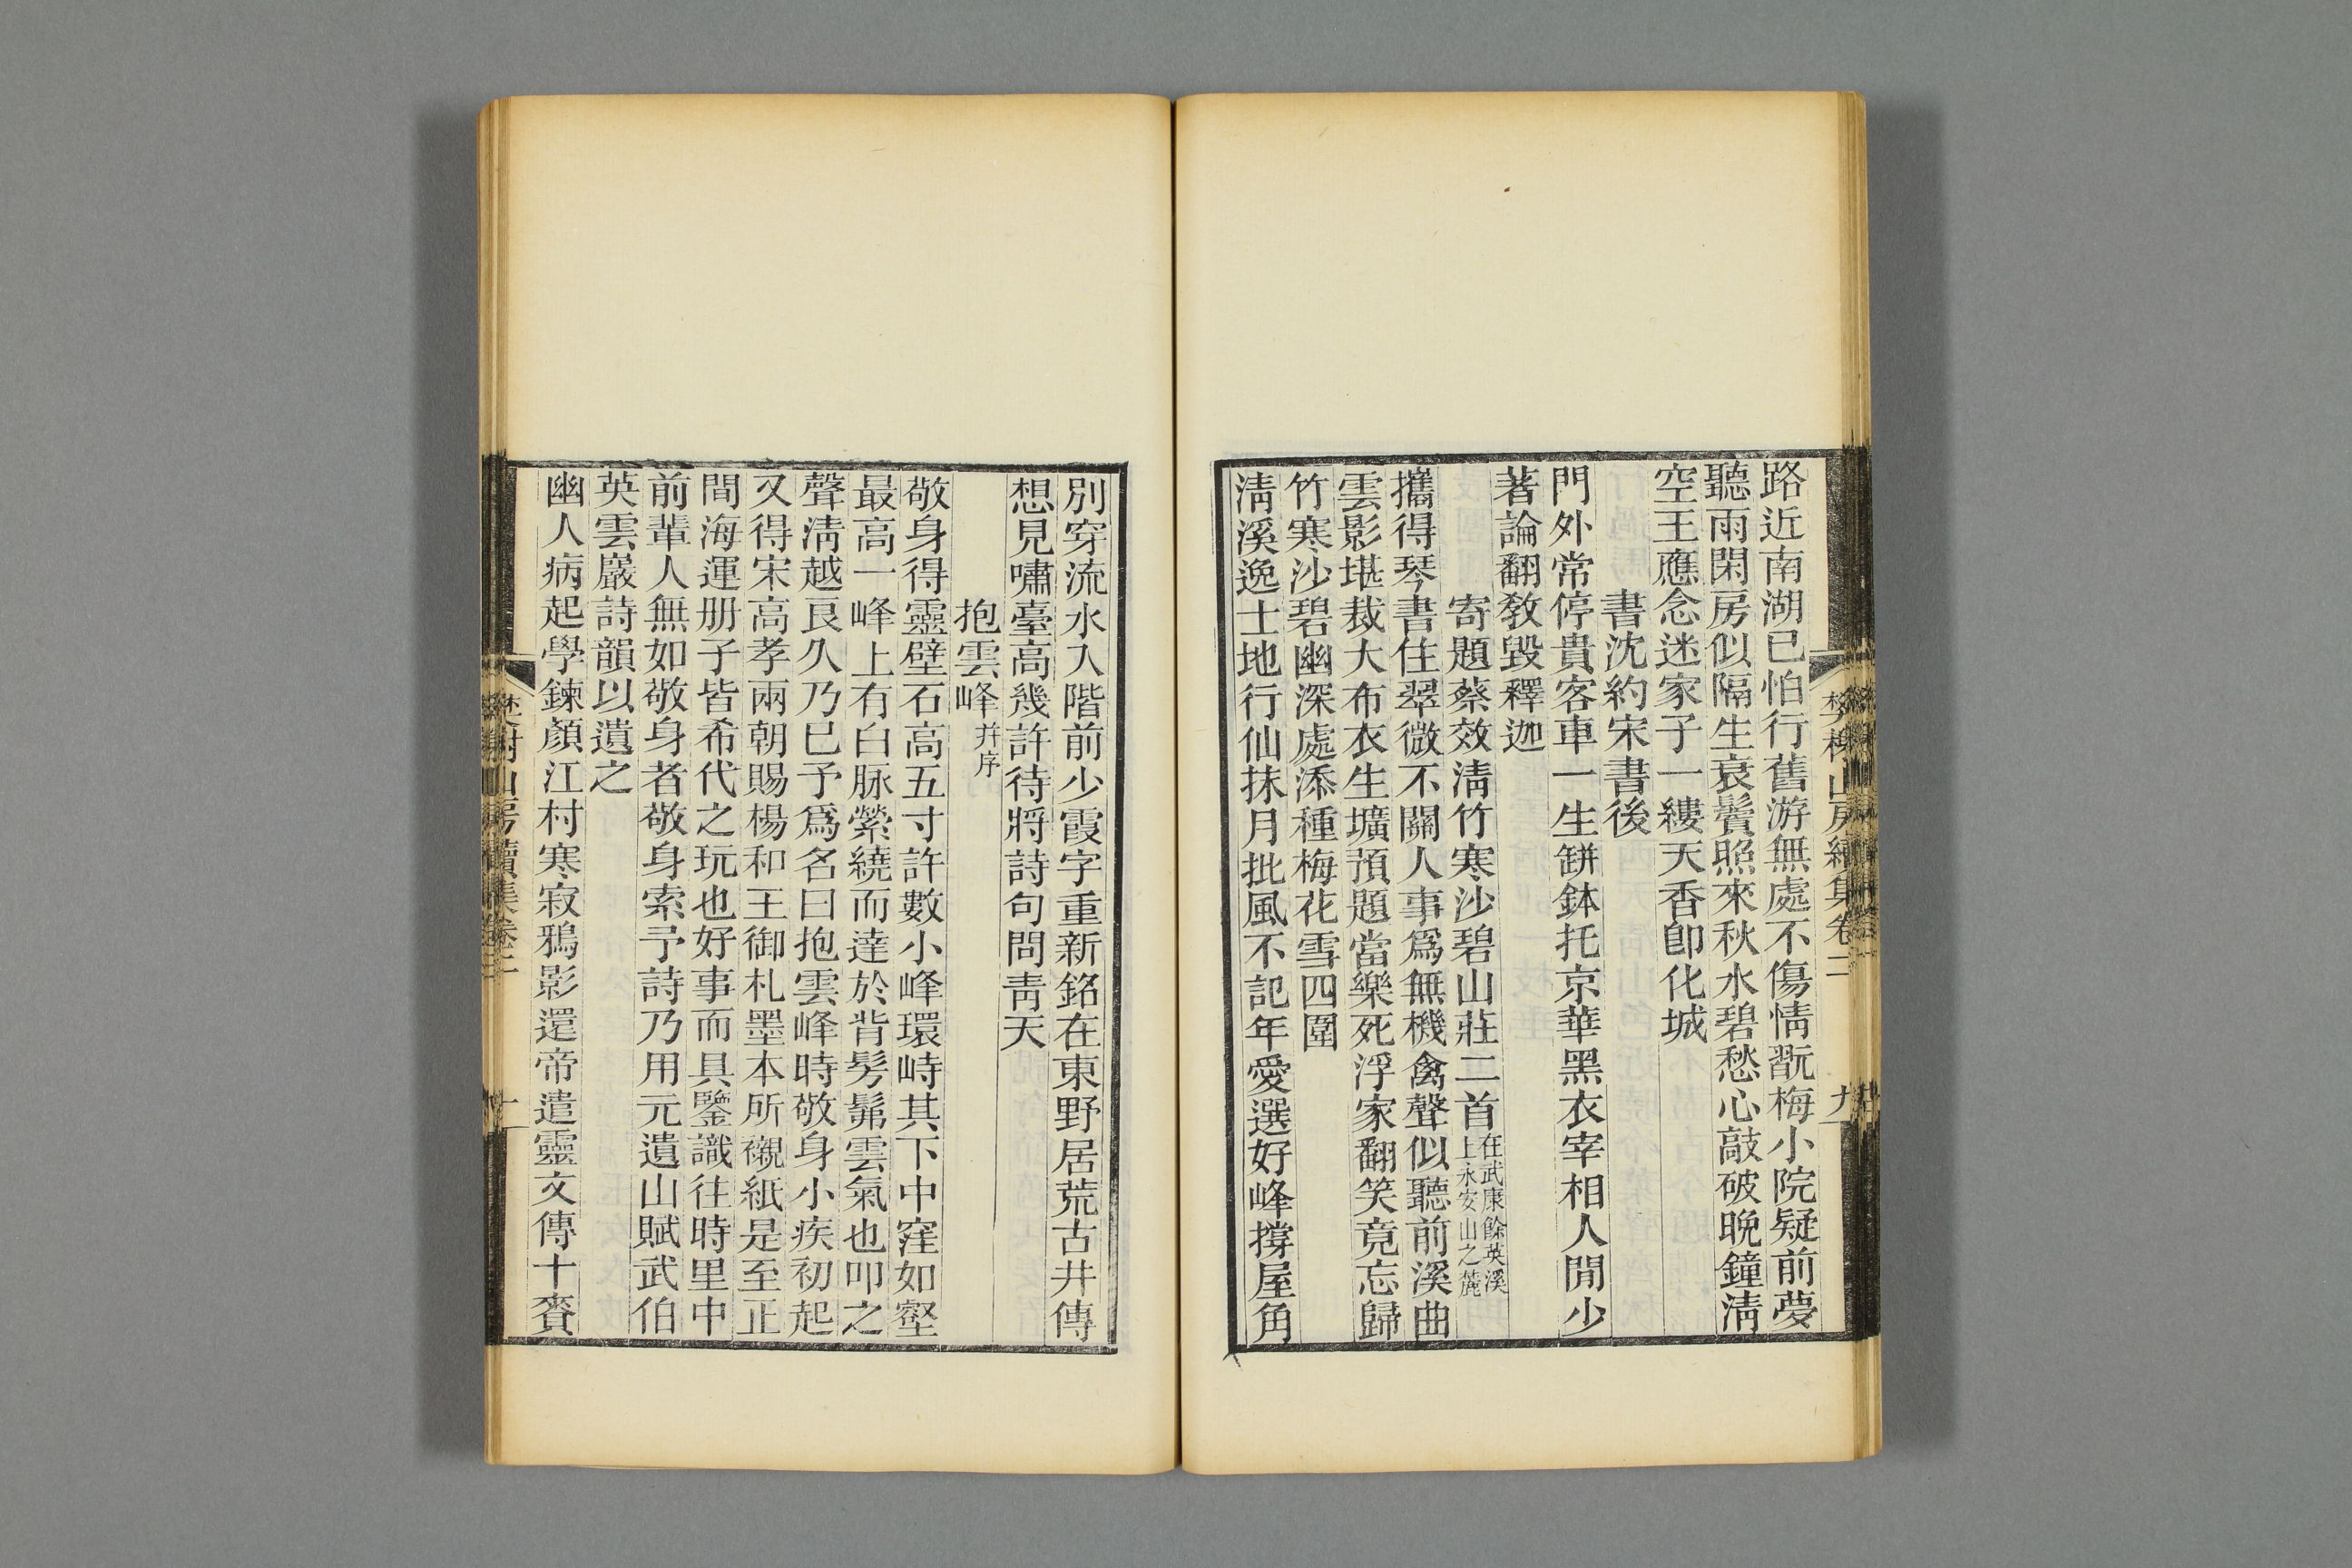 樊榭山房續集卷二
九
路近南湖已怕行舊游無處不傷情翫梅小院疑前夢
聽雨閑房似隔生衰鬢照來秋水碧愁心敲破晚鐘淸
空王應念迷家子一縷天香卽化城
書沈約宋書後
門外常停貴客車一生缾鉢托京華黑衣宰相人閒少
著論翻敎毀釋迦
寄題蔡效淸竹寒沙碧山莊二首在武康餘英溪上永安山之麓
攜得琴書住翠微不關人事爲無機禽聲似聽前溪曲
雲影堪裁大布衣生壙預題當樂死浮家翻笑竟忘歸
竹寒沙碧幽深處添種梅花雪四圍
淸溪逸士地行仙抹月批風不記年愛選好峰撐屋角
別穿流水入階前少霞字重新銘在東野居荒古井傳
想見嘯臺高幾許待將詩句問靑天
抱雲峰幷序
敬身得靈壁石高五寸許數小峰環峙其下中窪如壑
最高一峰上有白脉縈繞而達於背髣髴雲氣也叩之
聲淸越良久乃已予爲名曰抱雲峰時敬身小疾初起
又得宋高孝兩朝賜楊和王御札墨本所襯紙是至正
間海運册子皆希代之玩也好事而具鑒識往時里中
前輩人無如敬身者敬身索予詩乃用元遺山賦武伯
英雲巖詩韻以遺之
幽人病起學鍊顏江村寒寂鴉影還帝遣靈文傳十賚
樊榭山房續集卷二
十一